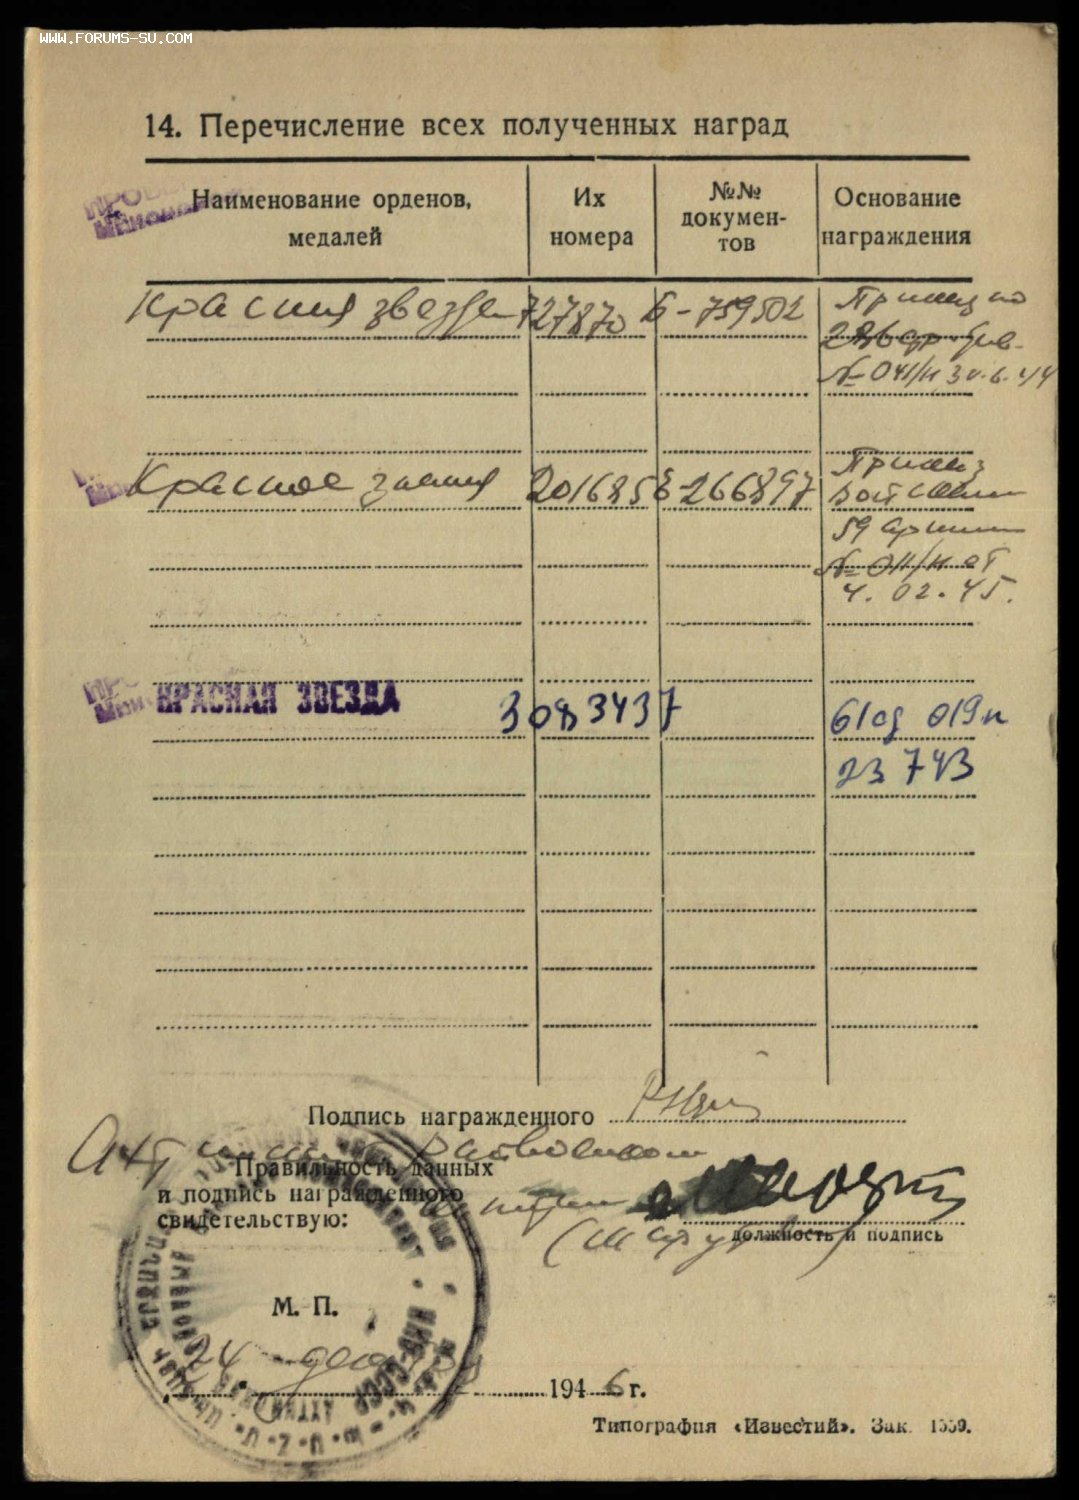 WWW.FORUMS-SU.COM
14. Перечисление всех полученных наград
Наименование орденов, медалей
Их номера
№№ документов
Основание награждения
Красная звезда 727870 Б-759502 Приказ по
бр.
№ 041/н 30.6.44
Красное знамя 201685 Б-266897 Приказ
войскам
59 армии
№ 011/н от
4.02.45.
КРАСНАЯ ЗВЕЗДА 3083437 61сд 019н
23 743
Подпись награжденного
Правильность данных
и подпись награжденного
свидетельствую:
должность и подпись
М. П.
24 декабря 1946 г.
Типография «Известий». Зак. 1559.